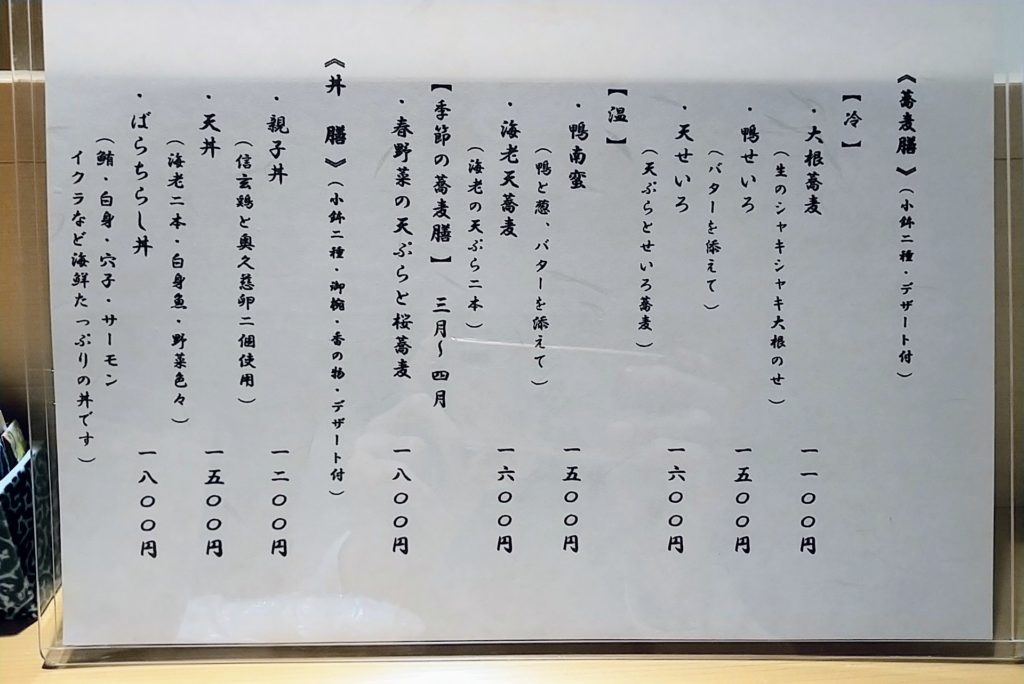 《蕎麦膳》（小鉢二種・デザート付）
【冷】
・大根蕎麦 一一〇〇円
（生のシャキシャキ大根のせ）
・鴨せいろ 一五〇〇円
（バターを添えて）
・天せいろ 一六〇〇円
（天ぷらとせいろ蕎麦）
【温】
・鴨南蛮 一五〇〇円
（鴨と葱、バターを添えて）
・海老天蕎麦 一六〇〇円
（海老の天ぷら二本）
【季節の蕎麦膳】 三月〜四月
・春野菜の天ぷらと桜蕎麦 一八〇〇円
《丼 膳》（小鉢二種・御椀・香の物・デザート付）
・親子丼 一二〇〇円
（信玄鶏と奥久慈卵二個使用）
・天丼 一五〇〇円
（海老二本・白身魚・野菜色々）
・ばらちらし丼 一八〇〇円
（鮪・白身・穴子・サーモン
イクラなど海鮮たっぷりの丼です）